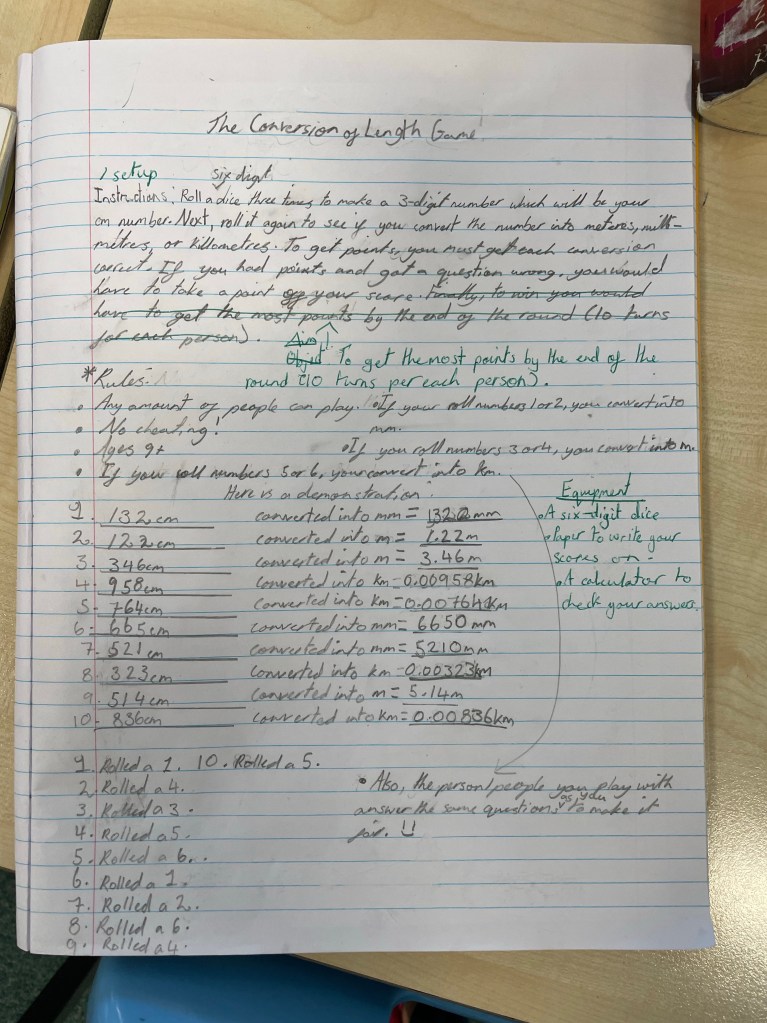 The Conversion of Length Game
/ setup six digit
Instructions: Roll a dice three times to make a 3-digit number which will be your
cm number. Next, roll it again to see if you convert the number into meteres, milli-
metres, or killometres. To get points, you must get each conversion
correct. If you had points and got a question wrong, you would
have to take a point off your score. Finally, to win you would
have to get the most points by the end of the round (10 turns
for each person).
Aim
Object: To get the most points by the end of the
round (10 turns per each person).
*Rules:
• Any amount of people can play. • If your roll numbers 1 or 2, you convert into
mm.
• No cheating!
• Ages 9+ • If you roll numbers 3 or 4, you convert into m.
• If you roll numbers 5 or 6, you convert into km.
Here is a demonstration:
1. 132cm converted into mm = 1320mm
2. 122cm converted into m = 1.22m
3. 346cm converted into m = 3.46m
4. 958cm converted into km = 0.00958km
5. 764cm converted into km = 0.00764km
6. 665cm converted into mm = 6650mm
7. 521cm converted into mm = 5210mm
8. 323cm converted into km = 0.00323km
9. 514cm converted into m = 5.14m
10. 836cm converted into km = 0.00836km
Equipment
• A six-digit dice
• Paper to write your
scores on.
• A calculator to
check your answers.
1. Rolled a 1. 10. Rolled a 5.
2. Rolled a 4.
3. Rolled a 3.
4. Rolled a 5.
5. Rolled a 6.
6. Rolled a 1.
7. Rolled a 2.
8. Rolled a 6.
9. Rolled a 4.
• Also, the person/people you play with
answer the same questions as you to make it
fair.